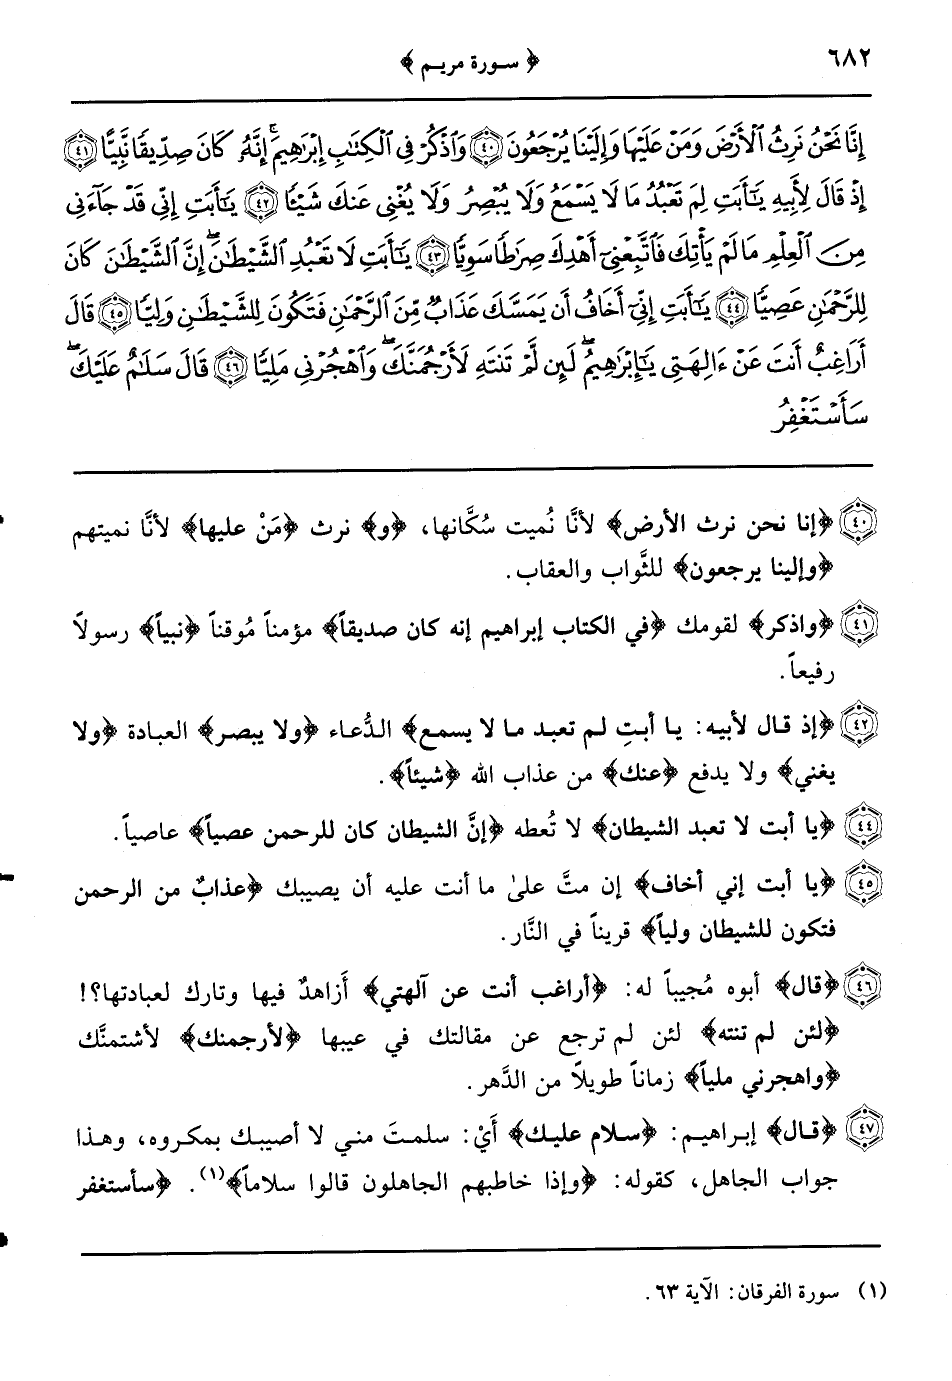 ٦٨٢
﴿ سورة مريم ﴾
إِنَّا نَحْنُ نَرِثُ ٱلْأَرْضَ وَمَنْ عَلَيْهَا وَإِلَيْنَا يُرْجَعُونَ ٤٠ وَٱذْكُرْ فِى ٱلْكِتَٰبِ إِبْرَٰهِيمَ ۚ إِنَّهُۥ كَانَ صِدِّيقًا نَّبِيًّا ٤١
إِذْ قَالَ لِأَبِيهِ يَٰٓأَبَتِ لِمَ تَعْبُدُ مَا لَا يَسْمَعُ وَلَا يُبْصِرُ وَلَا يُغْنِى عَنكَ شَيْـًٔا ٤٢ يَٰٓأَبَتِ إِنِّى قَدْ جَآءَنِى
مِنَ ٱلْعِلْمِ مَا لَمْ يَأْتِكَ فَٱتَّبِعْنِىٓ أَهْدِكَ صِرَٰطًا سَوِيًّا ٤٣ يَٰٓأَبَتِ لَا تَعْبُدِ ٱلشَّيْطَٰنَ ۖ إِنَّ ٱلشَّيْطَٰنَ كَانَ
لِلرَّحْمَٰنِ عَصِيًّا ٤٤ يَٰٓأَبَتِ إِنِّىٓ أَخَافُ أَن يَمَسَّكَ عَذَابٌ مِّنَ ٱلرَّحْمَٰنِ فَتَكُونَ لِلشَّيْطَٰنِ وَلِيًّا ٤٥ قَالَ
أَرَاغِبٌ أَنتَ عَنْ ءَالِهَتِى يَٰٓإِبْرَٰهِيمُ ۖ لَئِن لَّمْ تَنتَهِ لَأَرْجُمَنَّكَ ۖ وَٱهْجُرْنِى مَلِيًّا ٤٦ قَالَ سَلَٰمٌ عَلَيْكَ ۖ
سَأَسْتَغْفِرُ
٤٠ ﴿إنا نحن نرث الأرض﴾ لأنَّا نُميت سُكَّانها، ﴿و﴾ نرث ﴿مَنْ عليها﴾ لأنَّا نميتهم
﴿وإلينا يرجعون﴾ للثَّواب والعقاب.
٤١ ﴿واذكر﴾ لقومك ﴿في الكتاب إبراهيم إنه كان صديقاً﴾ مؤمناً مُوقناً ﴿نبياً﴾ رسولاً
رفيعاً.
٤٢ ﴿إذ قال لأبيه: يا أبتِ لم تعبد ما لا يسمع﴾ الدُّعاء ﴿ولا يبصر﴾ العبادة ﴿ولا
يغني﴾ ولا يدفع ﴿عنك﴾ من عذاب الله ﴿شيئاً﴾.
٤٤ ﴿يا أبت لا تعبد الشيطان﴾ لا تُعطه ﴿إنَّ الشيطان كان للرحمن عصياً﴾ عاصياً.
٤٥ ﴿يا أبت إني أخاف﴾ إن متَّ علىٰ ما أنت عليه أن يصيبك ﴿عذابٌ من الرحمن
فتكون للشيطان ولياً﴾ قريناً في النَّار.
٤٦ ﴿قال﴾ أبوه مُجيباً له: ﴿أراغب أنت عن آلهتي﴾ أَزاهدٌ فيها وتارك لعبادتها؟!
﴿لئن لم تنته﴾ لئن لم ترجع عن مقالتك في عيبها ﴿لأرجمنك﴾ لأشتمنَّك
﴿واهجرني ملياً﴾ زماناً طويلاً من الدَّهر.
٤٧ ﴿قال﴾ إبراهيم: ﴿سلام عليك﴾ أَيْ: سلمتَ مني لا أصيبك بمكروه، وهذا
جواب الجاهل، كقوله: ﴿وإذا خاطبهم الجاهلون قالوا سلاماً﴾(١). ﴿سأستغفر
(١) سورة الفرقان: الآية ٦٣.